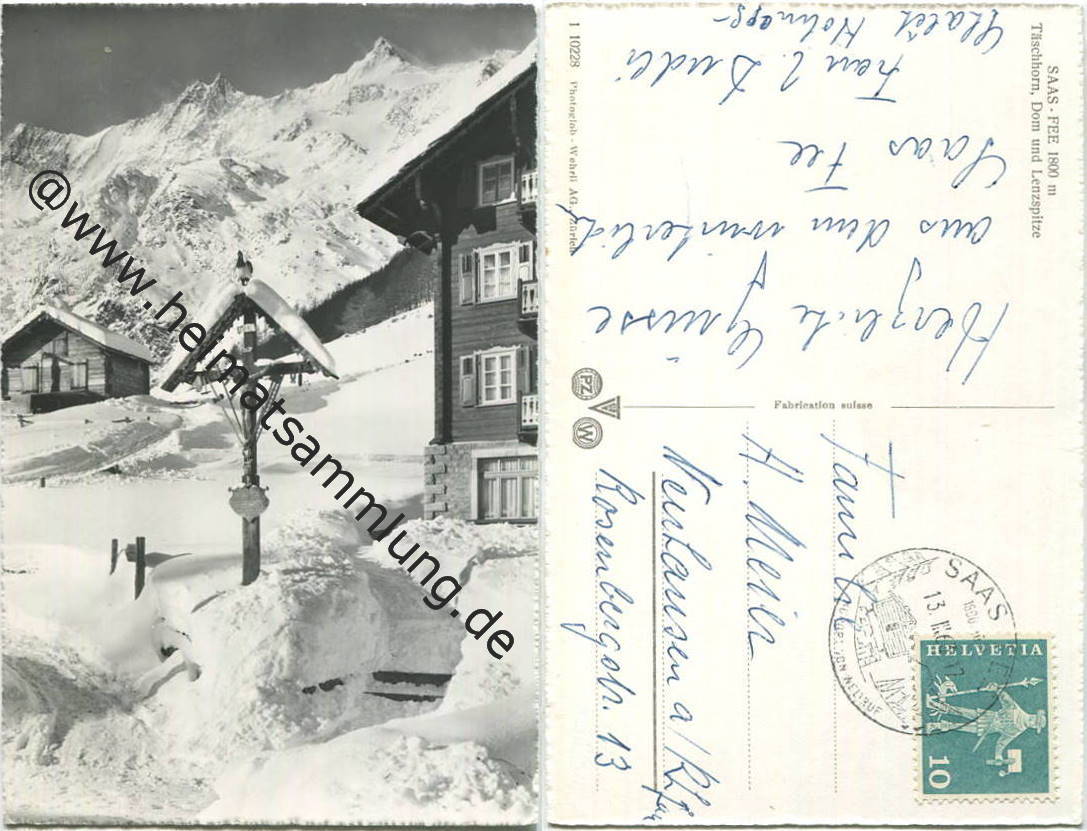 @www.heimatsammlung.de
SAAS-FEE 1800 m
Täschhorn, Dom und Lenzspitze
Herzliche Grüsse
aus dem winterlich
Saas Fee
1 10228 Photoglob-Wehrli AG., Zürich
Fabrication suisse
PZ
W
Familie
A. Meier
Neuhausen a/Rhf
Rosenbergstr. 13
SAAS
1800
13.
HELVETIA
10